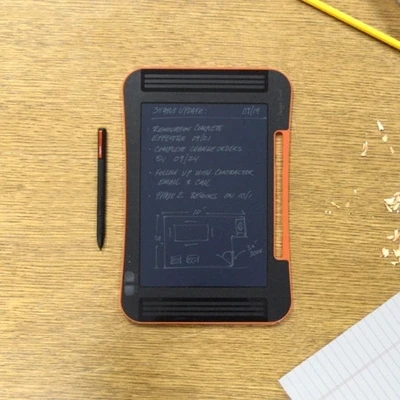 STATUS UPDATE: 09/19
- RENOVATION COMPLETE
EFFECTIVE 09/21
- COMPLETE CHANGE ORDERS
BY 09/24
- FOLLOW UP WITH CONTRACTOR
EMAIL & CALL
- PHASE 2 BEGINS ON 10/1
DOOR